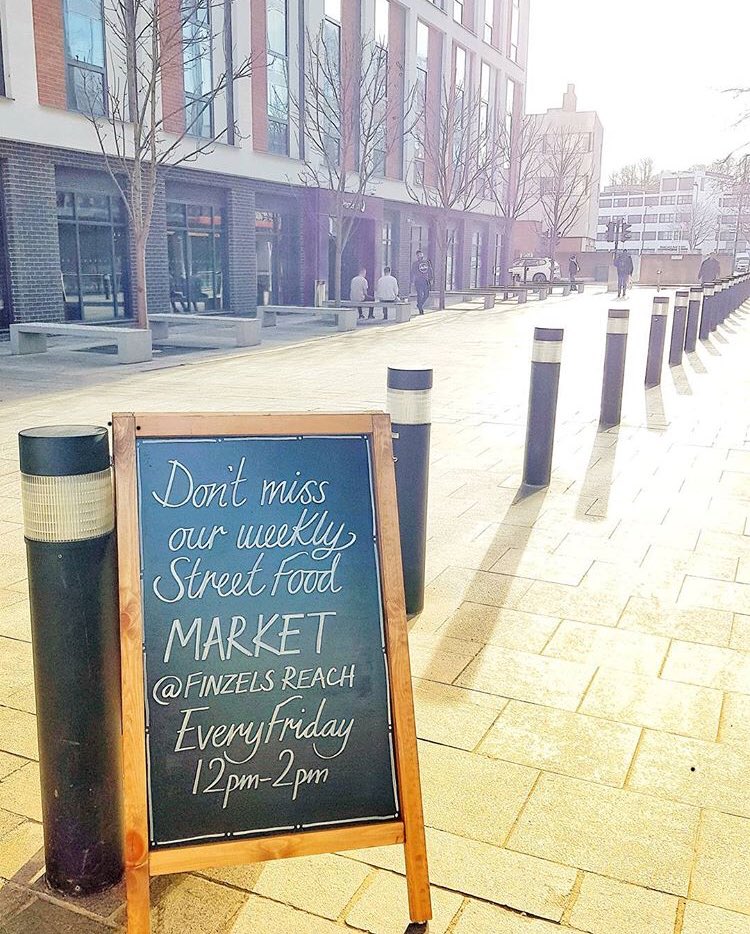 Don't miss
our weekly
Street Food
MARKET
@FINZELS REACH
Every Friday
12pm-2pm